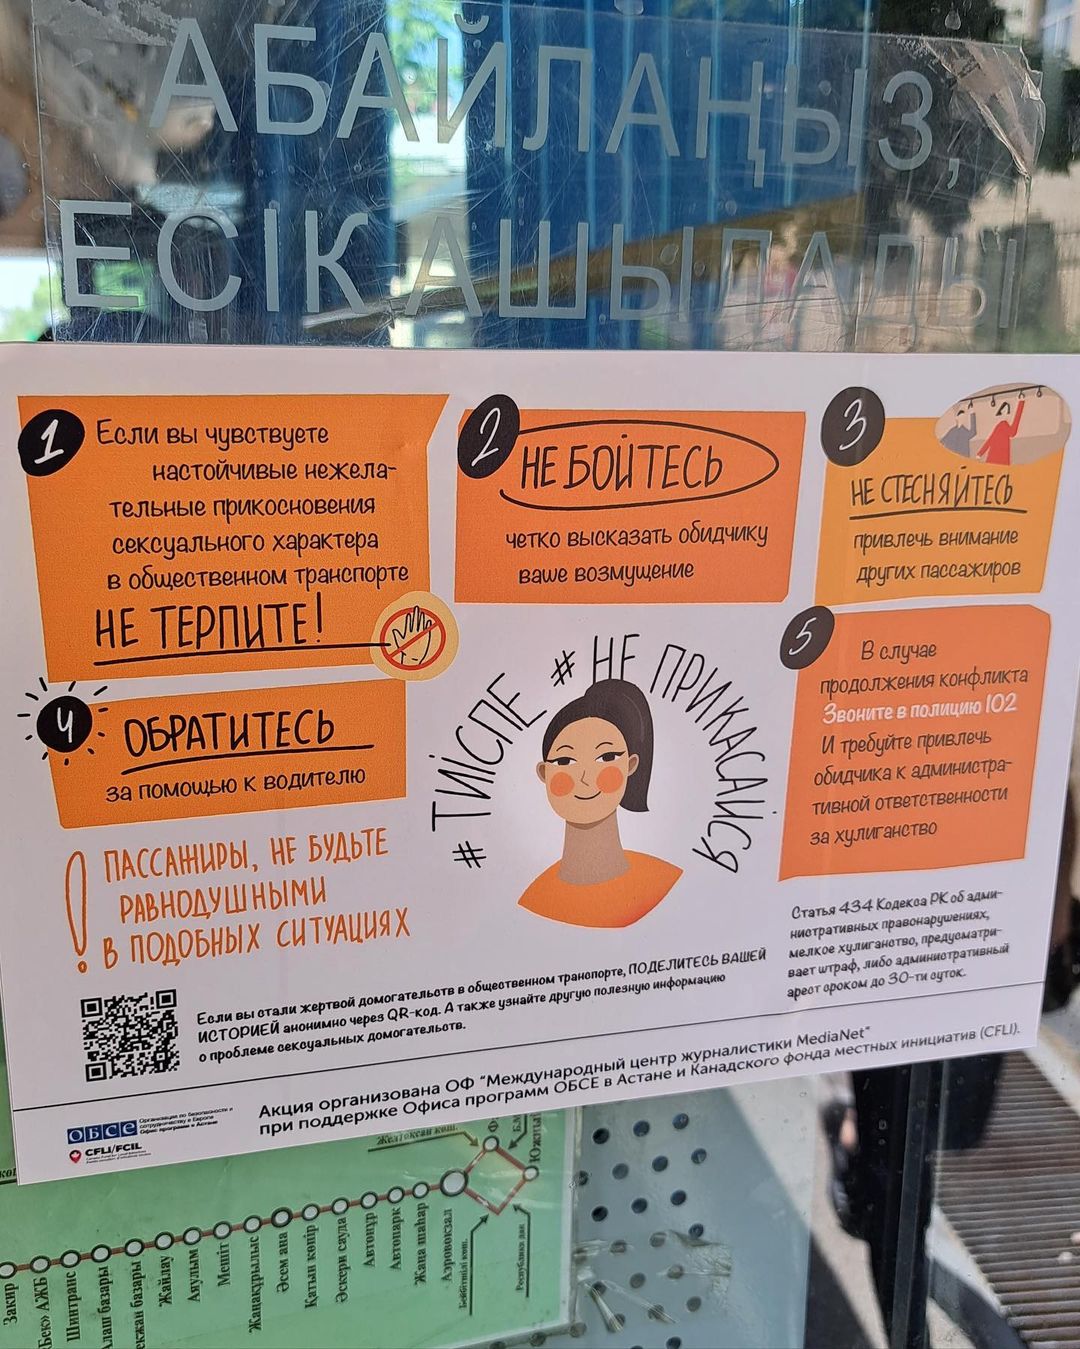 АБАЙЛАҢЫЗ,
ЕСІК АШЫЛАДЫ
1
Если вы чувствуете
настойчивые нежела-
тельные прикосновения
сексуального характера
в общественном транспорте
НЕ ТЕРПИТЕ!
2
НЕ БОЙТЕСЬ
четко высказать обидчику
ваше возмущение
3
НЕ СТЕСНЯЙТЕСЬ
привлечь внимание
других пассажиров
4
ОБРАТИТЕСЬ
за помощью к водителю
5
В случае
продолжения конфликта
Звоните в полицию 102
И требуйте привлечь
обидчика к администра-
тивной ответственности
за хулиганство
#ТИІСПЕ #НЕ ПРИКАСАЙСЯ
! ПАССАЖИРЫ, НЕ БУДЬТЕ
РАВНОДУШНЫМИ
В ПОДОБНЫХ СИТУАЦИЯХ
Статья 434 Кодекса РК об адми-
нистративных правонарушениях,
мелкое хулиганство, предусматри-
вает штраф, либо административный
арест сроком до 30-ти суток.
Если вы стали жертвой домогательств в общественном транспорте, ПОДЕЛИТЕСЬ ВАШЕЙ
ИСТОРИЕЙ анонимно через QR-код. А также узнайте другую полезную информацию
о проблеме сексуальных домогательств.
Акция организована ОФ "Международный центр журналистики MediaNet"
при поддержке Офиса программ ОБСЕ в Астане и Канадского фонда местных инициатив (CFLI).
ОБСЕ
Организация по безопасности и
сотрудничеству в Европе
Офис программ в Астане
CFLI/FCIL
Желтоқсан көш.
Закир
«Бек» АЖБ
Шинтранс
Алаш базары
Жайлау
Аяулым
Мешіт
Жаңақұрылыс
Әсем ана
Қатын көпір
Әскери сауда
Автонұр
Автопарк
Жаңа шаһар
Аэровокзал